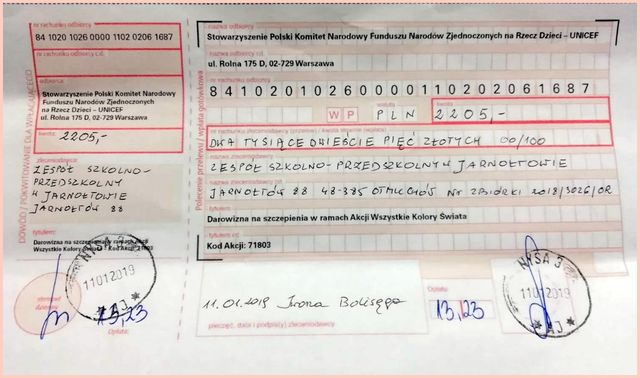 nr rachunku odbiorcy
84 1020 1026 0000 1102 0206 1687
nr rachunku odbiorcy cd.
odbiorca:
Stowarzyszenie Polski Komitet Narodowy
Funduszu Narodów Zjednoczonych
na Rzecz Dzieci – UNICEF
ul. Rolna 175 D, 02-729 Warszawa
kwota:
2205,-
zleceniodawca:
ZESPÓŁ SZKOLNO-
PRZEDSZKOLNY
W JARNOŁTOWIE
JARNOŁTÓW 88
tytułem:
Darowizna na szczepienia w ramach Akcji
Wszystkie Kolory Świata - Kod Akcji: 71803
NYSA 3
11012019
Opłata:
13,23
DOWÓD / POKWITOWANIE DLA WPŁACAJĄCEGO
Polecenie przelewu / wpłata gotówkowa
nazwa odbiorcy
Stowarzyszenie Polski Komitet Narodowy Funduszu Narodów Zjednoczonych na Rzecz Dzieci – UNICEF
nazwa odbiorcy cd.
ul. Rolna 175 D, 02-729 Warszawa
nr rachunku odbiorcy
84102010260000110202061687
W P
waluta
PLN
kwota:
2205,-
nr rachunku zleceniodawcy (przelew) / kwota słownie (wpłata)
DWA TYSIĄCE DWIEŚCIE PIĘĆ ZŁOTYCH 00/100
nazwa zleceniodawcy
ZESPÓŁ SZKOLNO-PRZEDSZKOLNY W JARNOŁTOWIE
nazwa zleceniodawcy cd.
JARNOŁTÓW 88 48-385 OTMUCHÓW Nr ZBIÓRKI 2018/3026/OR
tytułem:
Darowizna na szczepienia w ramach Akcji Wszystkie Kolory Świata
Kod Akcji: 71803
11.01.2019 Irona
pieczęć, data i podpis(y) zleceniodawcy
Opłata:
13,23
NYSA 3
11012019
AJ